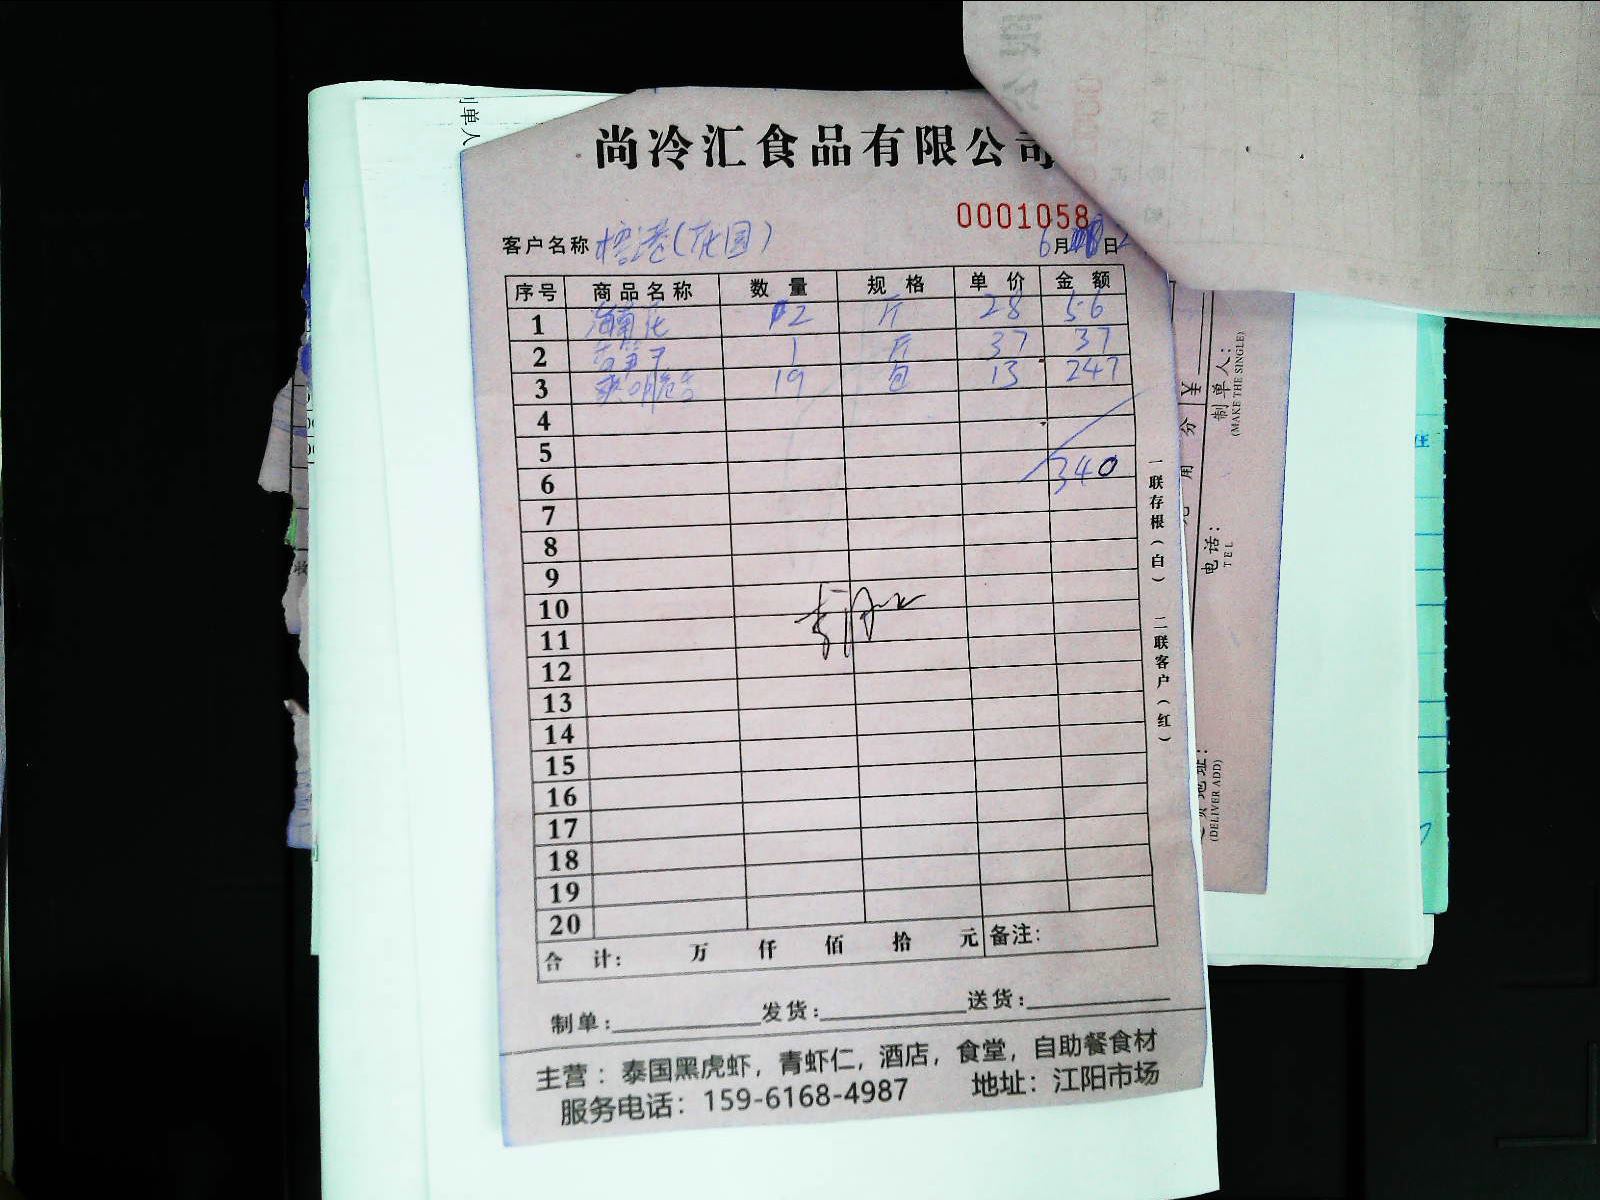 尚冷汇食品有限公司
0001058
客户名称 (花园) 6月 日
序号 商品名称 数量 规格 单价 金额
1 2 斤 28 56
2 1 斤 37 37
3 19 包 13 247
4
5
6 340
7
8
9
10
11
12
13
14
15
16
17
18
19
20
合计: 万 仟 佰 拾 元 备注:
制单: 发货: 送货:
主营：泰国黑虎虾，青虾仁，酒店，食堂，自助餐食材
服务电话：159-6168-4987 地址：江阳市场
一联存根(白) 二联客户(红)
制单人
制单人:
(MAKE THE SINGLE)
电话:
TEL
(DELIVER ADD)